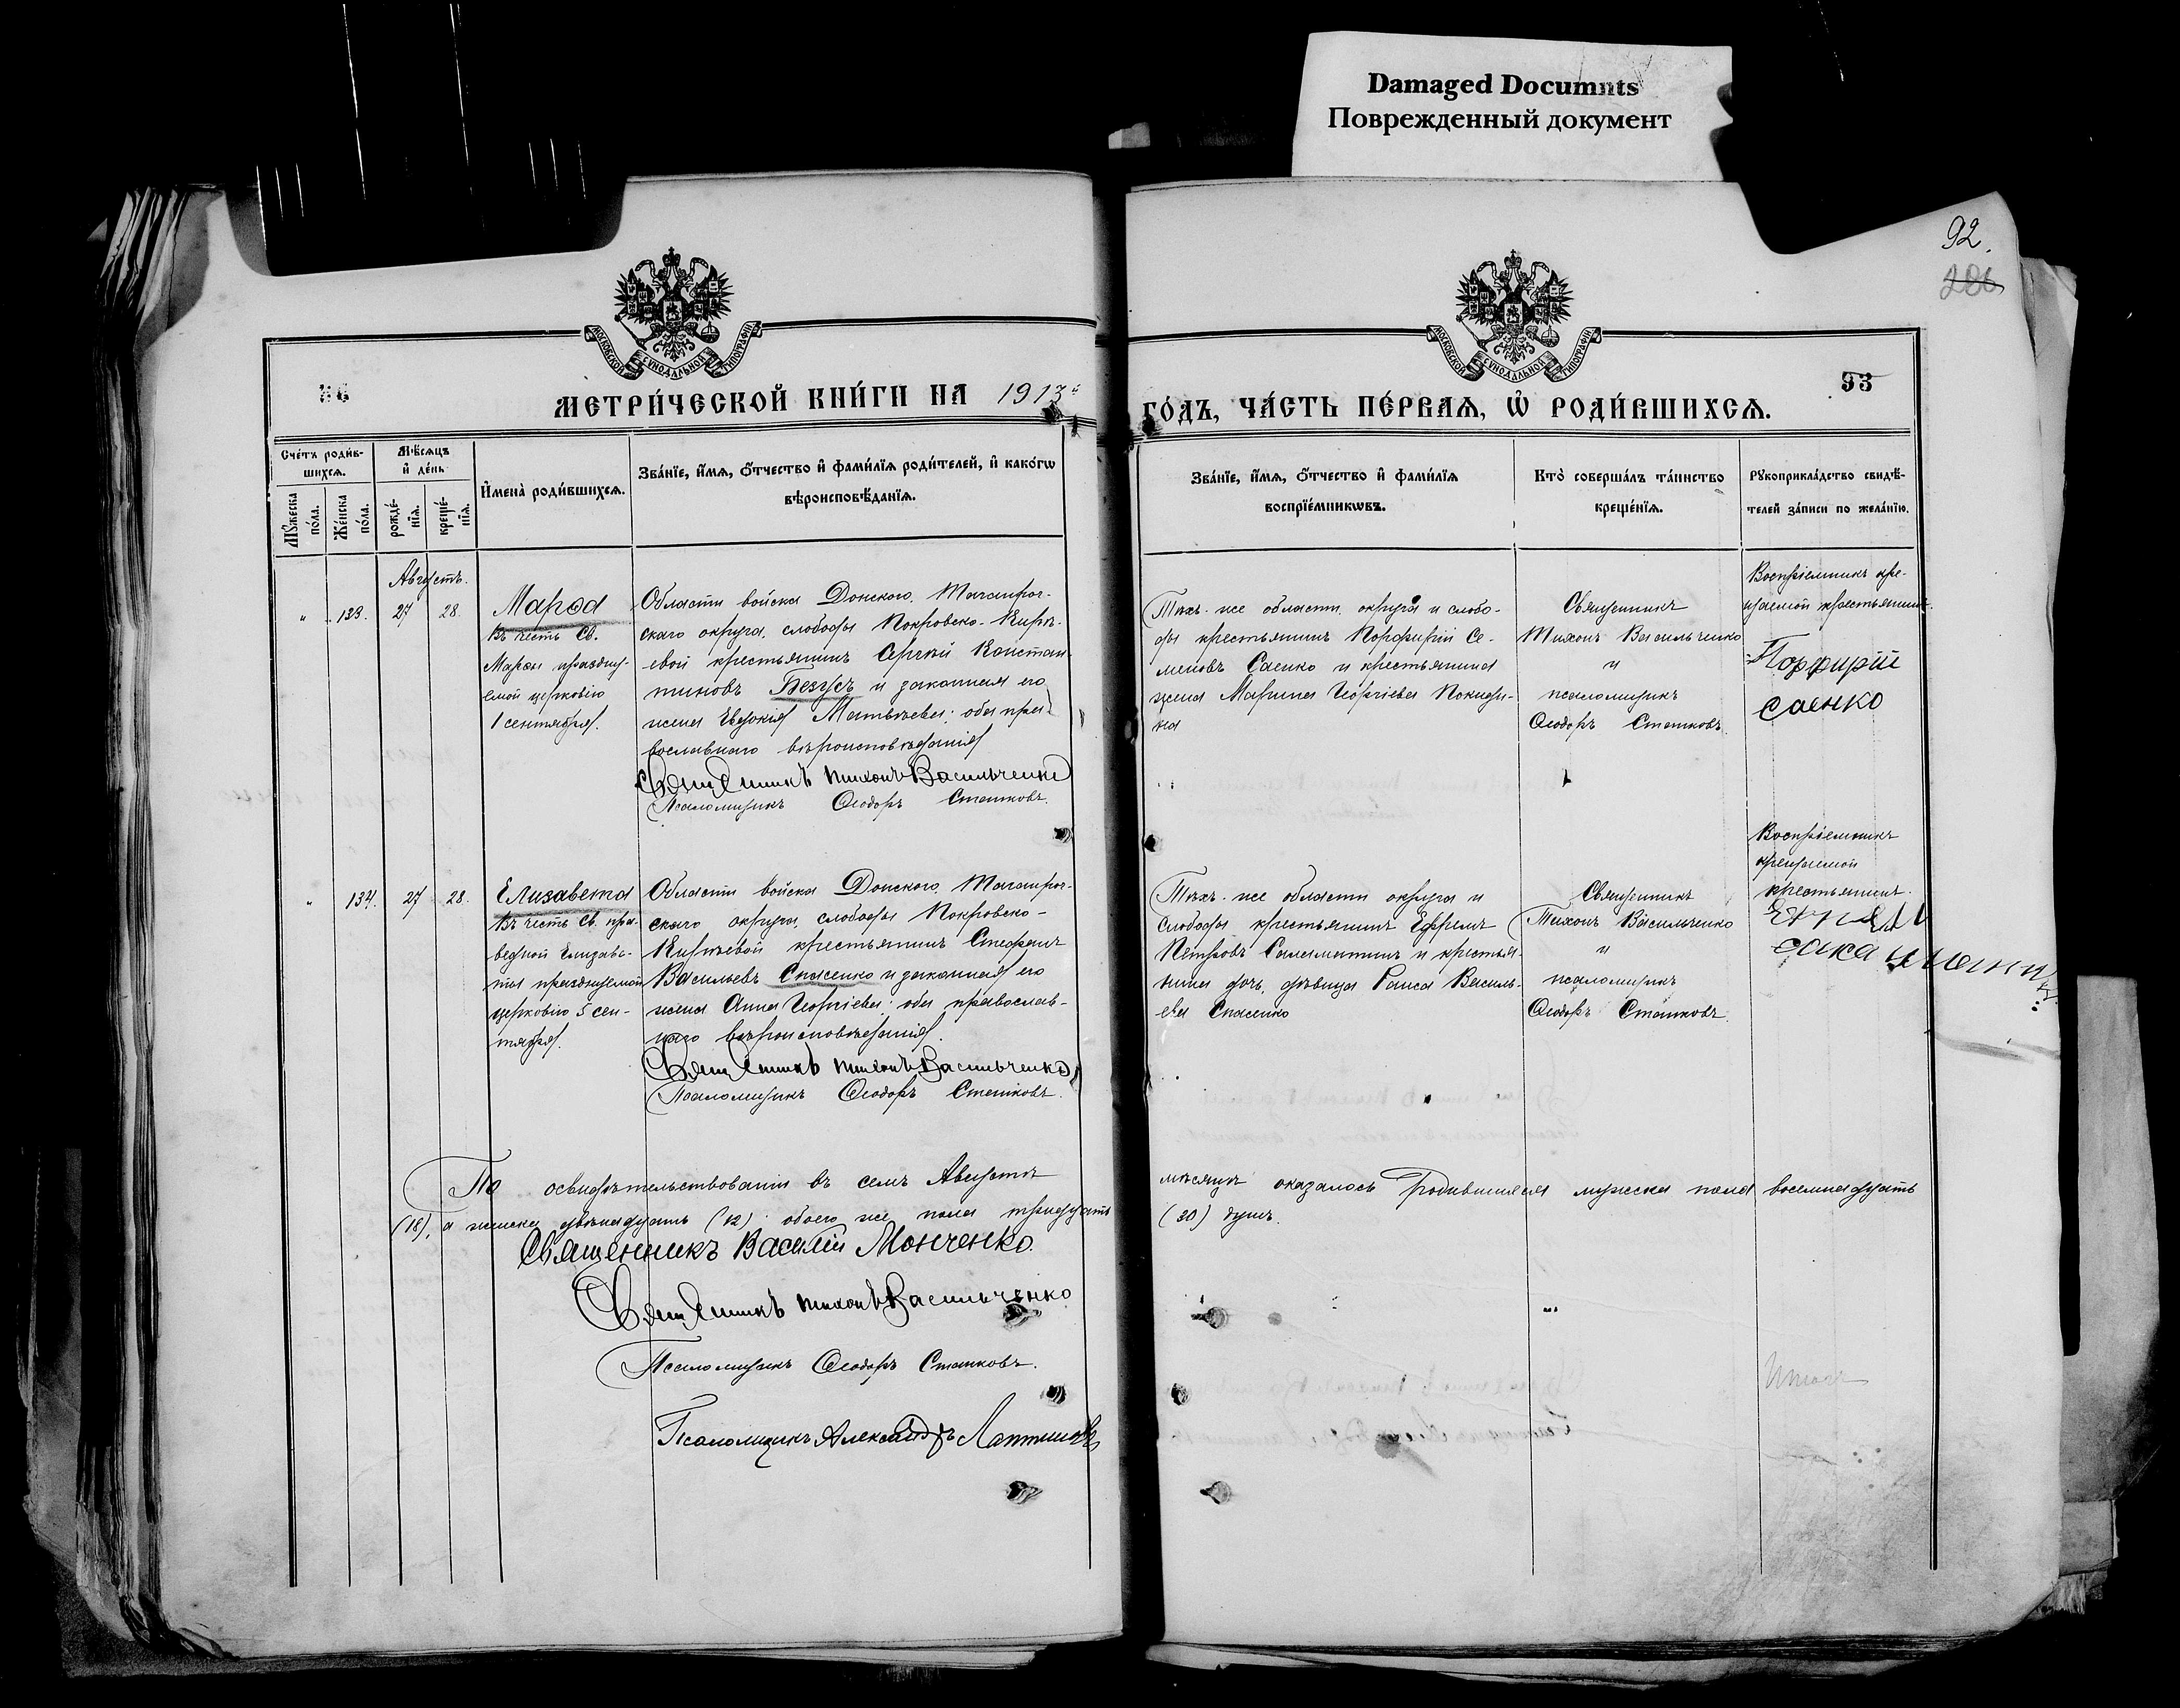 Damaged Documnts
Поврежденный документ
92.
МОСКОВСКОЙ СѴНОДАЛЬНОЙ ТИПОГРАФІИ
МОСКОВСКОЙ СѴНОДАЛЬНОЙ ТИПОГРАФІИ
93
МЕТРИ́ЧЕСКОЙ КНИ́ГИ НА 1913
ГО́ДЪ, ЧА́СТЬ ПЕ́РВАѦ, Ѡ҆ РОДИ́ВШИХСѦ.
Сче́тъ роди́в-
шихсѧ.
Мѣ́сѧцъ
и҆ де́нь
Мꙋ́жеска по́ла.
Же́нска по́ла.
рожде́-
нїѧ.
креще́-
нїѧ.
И҆мена̀ роди́вшихсѧ.
Зва́нїе, и҆́мѧ, ѻ҆́тчество и҆ фами́лїѧ роди́телей, и҆ како́гѡ
вѣроисповѣ́данїѧ.
Зва́нїе, и҆́мѧ, ѻ҆́тчество и҆ фами́лїѧ
воспрїе́мникѡвъ.
Кто̀ соверша́лъ та́инство
креще́нїѧ.
Рꙋкоприкла́дство свидѣ́-
телей за́писи по жела́нїю.
Августъ.
" 133. 27 28.
Марѳа
въ честь Св.
Марѳы празднуе-
емой церковію
1 сентября.
Области войска Донского, Таганрог-
скаго округа, слободы Покровско-Кирѣ-
евой крестьянинъ Сергѣй Констан-
тиновъ Безусъ и законная его
жена Евдокія Матвѣева; оба пра-
вославнаго вѣроисповѣданія
Священникъ Тихонъ Васильченко
Псаломщикъ Ѳеодоръ Сташковъ.
Тѣхъ-же области, округа и слобо-
ды крестьянинъ Порфирій Се-
меновъ Саенко и крестьянина
жена Марина Георгіева Покиди-
на
Священникъ
Тихонъ Васильченко
и
псаломщикъ
Ѳеодоръ Сташковъ.
Воспріемникъ кре-
щаемой крестьянинъ.
Порфирій
Саенко
" 134. 27 28.
Елизавета
въ честь Св. пра-
ведной Елизаве-
ты празднуемой
церковію 5 сен-
тября.
Области войска Донского, Таганрог-
скаго округа, слободы Покровско-
Кирѣевой крестьянинъ Стефанъ
Васильевъ Спасенко и законная его
жена Анна Георгіева; оба православ-
наго вѣроисповѣданія.
Священникъ Тихонъ Васильченко
Псаломщикъ Ѳеодоръ Сташковъ.
Тѣхъ-же области округа и
слободы крестьянинъ Ефремъ
Петровъ Саламатинъ и крестья-
нина дочь, дѣвица Раиса Василь-
ева Спасенко
Священникъ
Тихонъ Васильченко
и
псаломщикъ
Ѳеодоръ Сташковъ.
Воспріемникъ
крещаемой
крестьянинъ.
По освидѣтельствованіи въ семъ Августѣ
мѣсяцѣ оказалось родившихся мужска пола восемнадцать
(18), а женска двѣнадцать (12) обоего же пола тридцать
(30) душъ.
Священникъ Василій Монченко.
Священникъ Тихонъ Васильченко
Псаломщикъ Ѳеодоръ Сташковъ.
Псаломщикъ Александръ Лаптиновъ